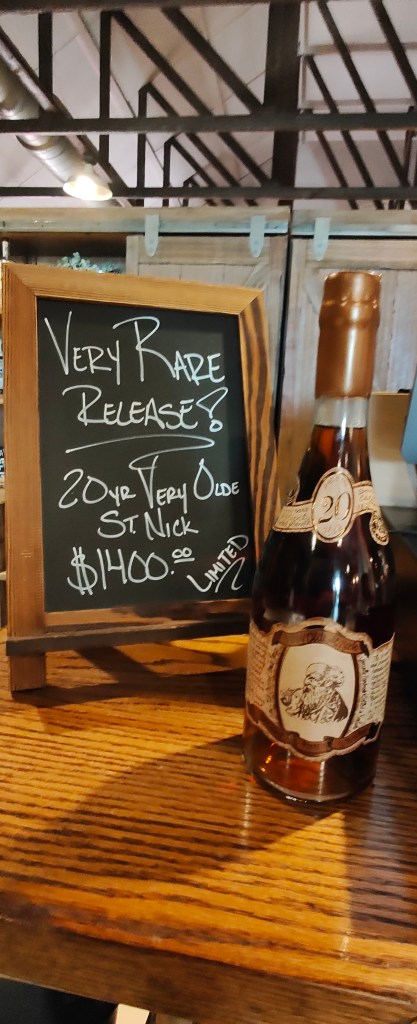 VERY RARE
RELEASE!
20YR VERY OLDE
ST. NICK
$1400.00
LIMITED
20